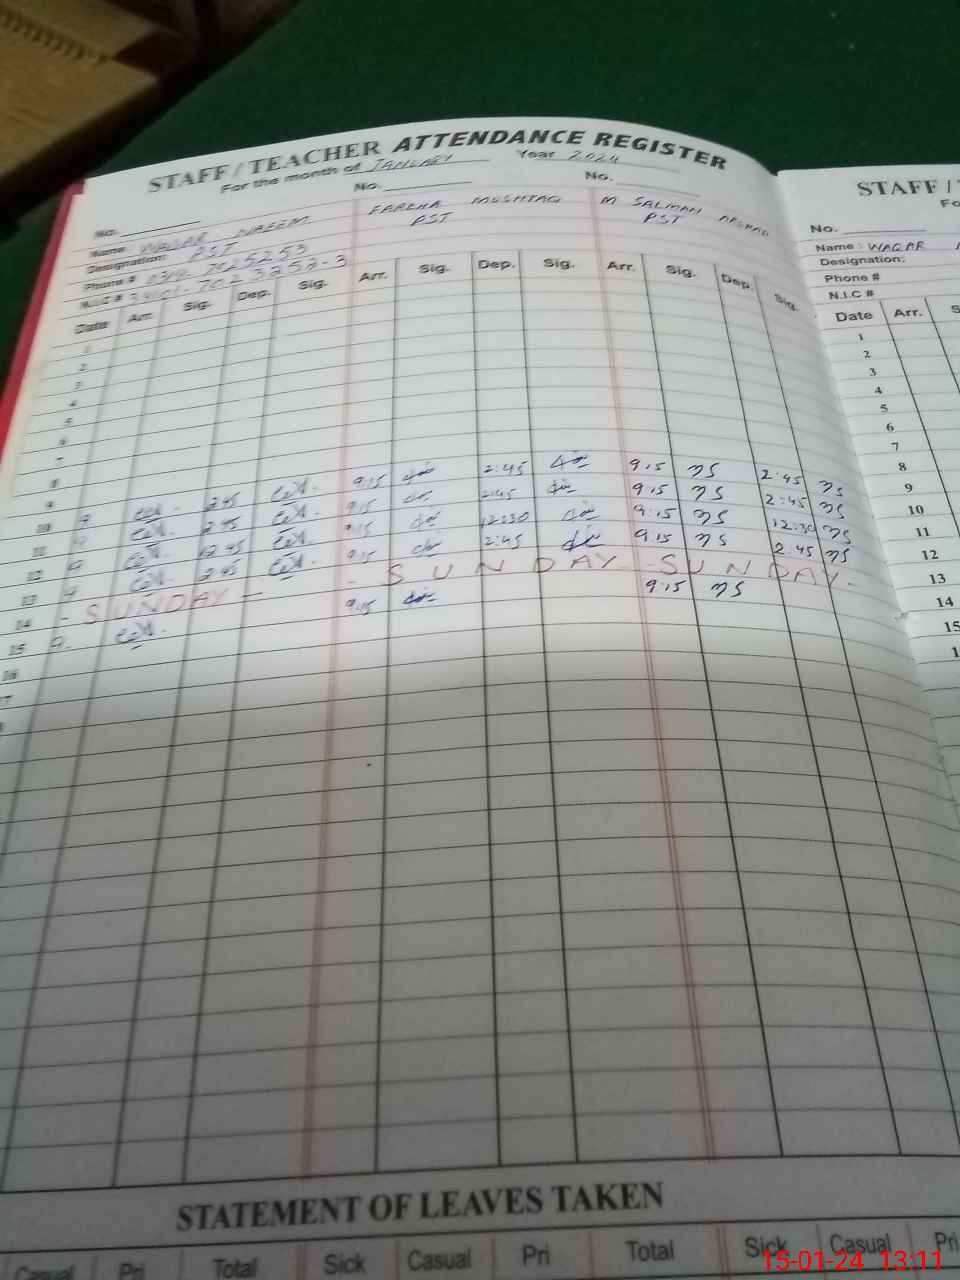 STAFF / TEACHER ATTENDANCE REGISTER
For the month of JANUARY Year 2024
No. No. No.
Name: WAQAR NAEEM FAREHA MUSHTAQ M SALMAN ARSHAD
Designation: PST PST PST
Phone # 7025253
N.I.C #
Date Arr. Sig. Dep. Sig. Arr. Sig. Dep. Sig. Arr. Sig. Dep. Sig.
1
2
3
4
5
6
7
8
9
10 9 2:45 9:15 2:45 9:15 MS 2:45 MS
11 9 2:45 9:15 2:45 9:15 MS 2:45 MS
12 9 12:45 9:15 12:30 9:15 MS 12:30 MS
13 9 2:45 9:15 2:45 9:15 MS 2:45 MS
14 - SUNDAY - - SUNDAY - SUNDAY -
15 9 9:15 9:15 MS
16
17
STATEMENT OF LEAVES TAKEN
Casual Pri Total Sick Casual Pri Total Sick Casual Pri
STAFF /
No.
Name: WAQAR
Designation:
Phone #
N.I.C #
Date Arr.
1
2
3
4
5
6
7
8
9
10
11
12
13
14
15
15-01-24 13:11